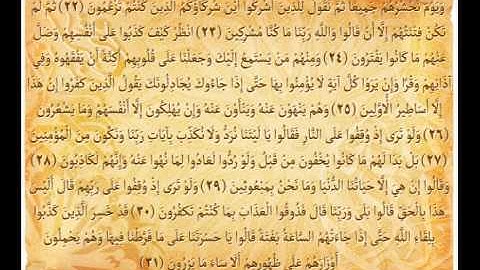 وَيَوْمَ نَحْشُرُهُمْ جَمِيعًا ثُمَّ نَقُولُ لِلَّذِينَ أَشْرَكُوا أَيْنَ شُرَكَاؤُكُمُ الَّذِينَ كُنْتُمْ تَزْعُمُونَ (٢٢) ثُمَّ لَمْ
تَكُنْ فِتْنَتُهُمْ إِلَّا أَنْ قَالُوا وَاللَّهِ رَبِّنَا مَا كُنَّا مُشْرِكِينَ (٢٣) انْظُرْ كَيْفَ كَذَبُوا عَلَى أَنْفُسِهِمْ وَضَلَّ
عَنْهُمْ مَا كَانُوا يَفْتَرُونَ (٢٤) وَمِنْهُمْ مَنْ يَسْتَمِعُ إِلَيْكَ وَجَعَلْنَا عَلَى قُلُوبِهِمْ أَكِنَّةً أَنْ يَفْقَهُوهُ وَفِي
آذَانِهِمْ وَقْرًا وَإِنْ يَرَوْا كُلَّ آيَةٍ لَا يُؤْمِنُوا بِهَا حَتَّى إِذَا جَاءُوكَ يُجَادِلُونَكَ يَقُولُ الَّذِينَ كَفَرُوا إِنْ هَذَا
إِلَّا أَسَاطِيرُ الْأَوَّلِينَ (٢٥) وَهُمْ يَنْهَوْنَ عَنْهُ وَيَنْأَوْنَ عَنْهُ وَإِنْ يُهْلِكُونَ إِلَّا أَنْفُسَهُمْ وَمَا يَشْعُرُونَ
(٢٦) وَلَوْ تَرَى إِذْ وُقِفُوا عَلَى النَّارِ فَقَالُوا يَا لَيْتَنَا نُرَدُّ وَلَا نُكَذِّبَ بِآيَاتِ رَبِّنَا وَنَكُونَ مِنَ الْمُؤْمِنِينَ
(٢٧) بَلْ بَدَا لَهُمْ مَا كَانُوا يُخْفُونَ مِنْ قَبْلُ وَلَوْ رُدُّوا لَعَادُوا لِمَا نُهُوا عَنْهُ وَإِنَّهُمْ لَكَاذِبُونَ (٢٨)
وَقَالُوا إِنْ هِيَ إِلَّا حَيَاتُنَا الدُّنْيَا وَمَا نَحْنُ بِمَبْعُوثِينَ (٢٩) وَلَوْ تَرَى إِذْ وُقِفُوا عَلَى رَبِّهِمْ قَالَ أَلَيْسَ
هَذَا بِالْحَقِّ قَالُوا بَلَى وَرَبِّنَا قَالَ فَذُوقُوا الْعَذَابَ بِمَا كُنْتُمْ تَكْفُرُونَ (٣٠) قَدْ خَسِرَ الَّذِينَ كَذَّبُوا
بِلِقَاءِ اللَّهِ حَتَّى إِذَا جَاءَتْهُمُ السَّاعَةُ بَغْتَةً قَالُوا يَا حَسْرَتَنَا عَلَى مَا فَرَّطْنَا فِيهَا وَهُمْ يَحْمِلُونَ
أَوْزَارَهُمْ عَلَى ظُهُورِهِمْ أَلَا سَاءَ مَا يَزِرُونَ (٣١)